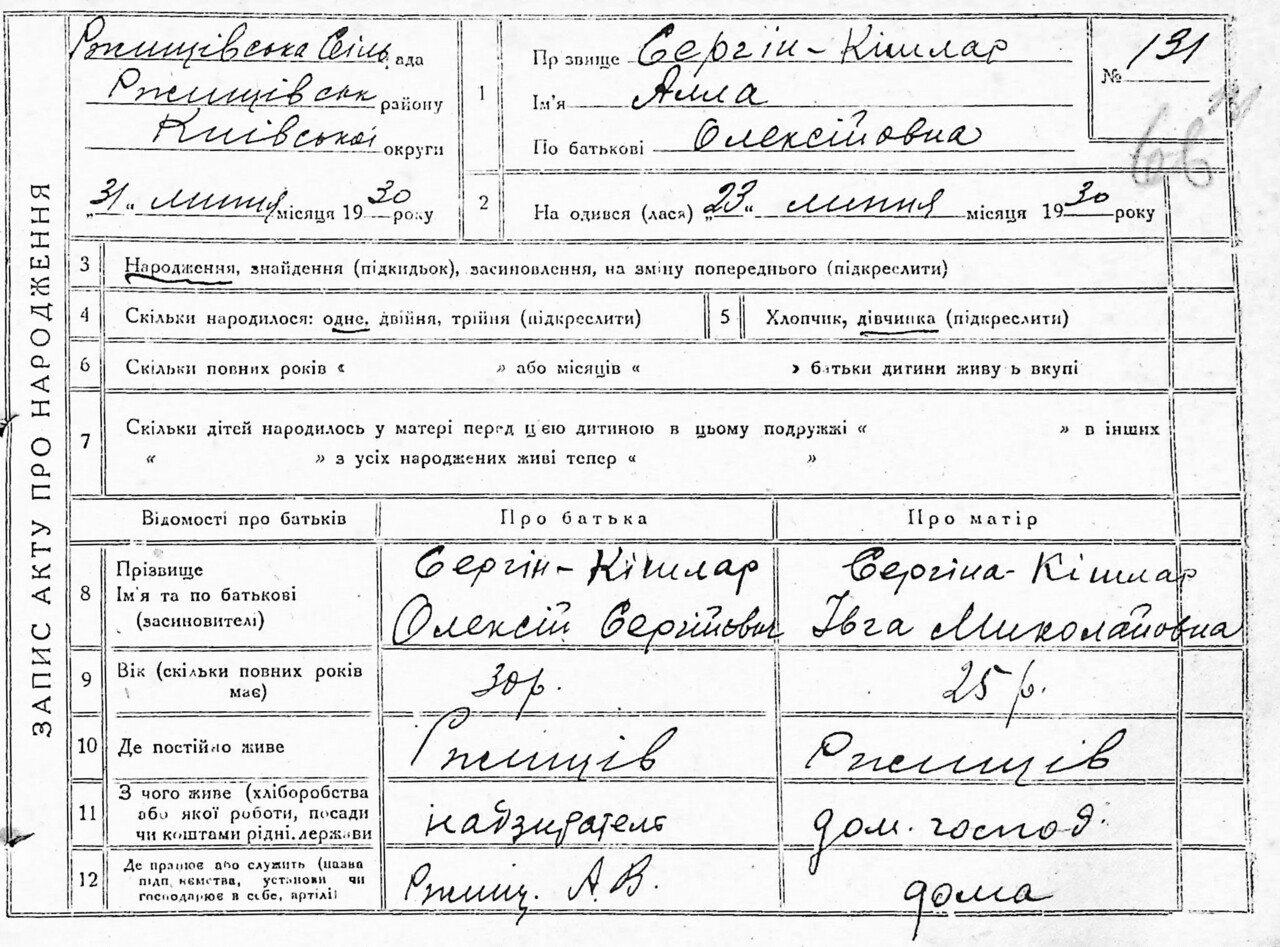 ЗАПИС АКТУ ПРО НАРОДЖЕННЯ
Ржищівська Сіль ада
Ржищівськ району
Київської округи
„31" липня місяця 1930 року
1
Пр звище Сергін-Кішлар
Ім'я Алла
По батькові Олексійовна
№ 131
2
На одився (лася) „23" липня місяця 1930 року
3 Народження, знайдення (підкидьок), засиновлення, на зміну попереднього (підкреслити)
4 Скільки народилося: одне, двійня, трійня (підкреслити) 5 Хлопчик, дівчинка (підкреслити)
6 Скільки повних років « » або місяців « » батьки дитини живу ь вкупі
7 Скільки дітей народилось у матері перед цією дитиною в цьому подружжі « » в інших
« » з усіх народжених живі тепер « »
Відомості про батьків Про батька Про матір
8
Прізвище
Ім'я та по батькові
(засиновителі)
Сергін-Кішлар
Олексій Сергійович
Сергіна-Кішлар
Івга Миколайовна
9
Вік (скільки повних років
має)
30р.
25 р.
10 Де постійно живе Ржищів Ржищів
11
З чого живе (хліборобства
або якої роботи, посади
чи коштами рідні, держави
надзиратель
дом. господ.
12
Де працює або служить (назва
підп ємства, установи чи
господарює в себе, артілі)
Ржищ. А.В.
дома